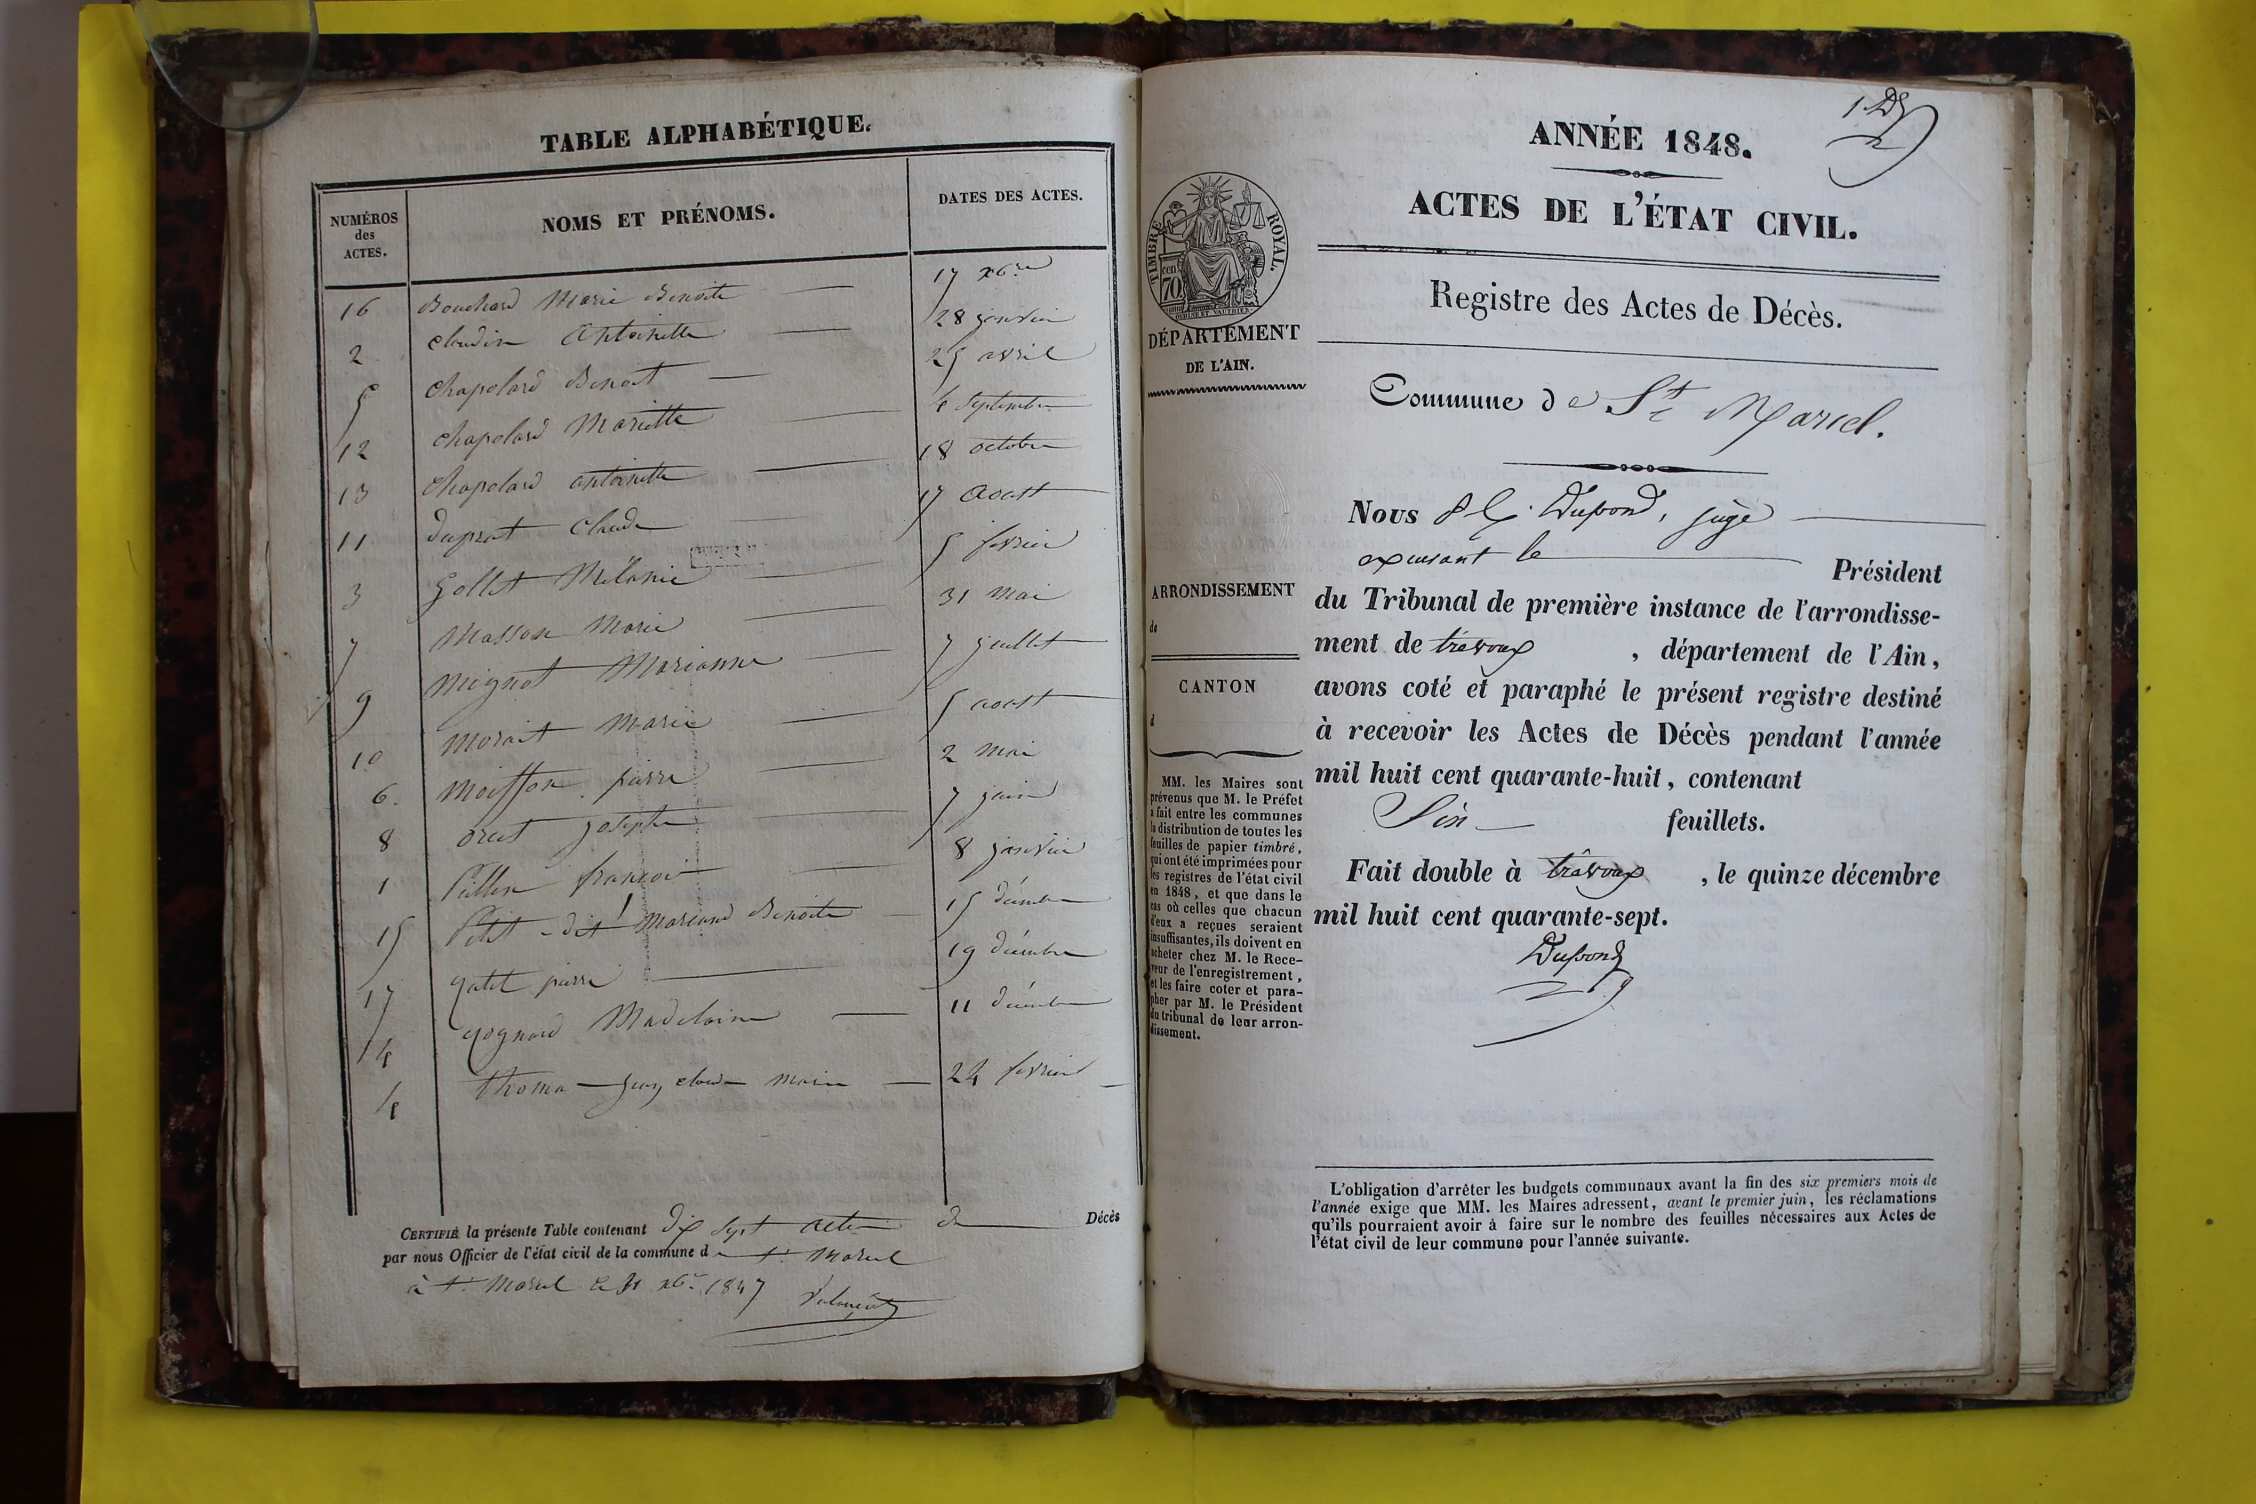 TABLE ALPHABÉTIQUE.
NUMÉROS des ACTES. NOMS ET PRÉNOMS. DATES DES ACTES.
16 Bouchard Marie Benoite 17 xbre
2 claudin Antoinette 28 janvier
5 Chapelard Benoit 25 avril
12 Chapelard Mariette 6 Septembre
13 Chapelard antoinette 18 octobre
11 duprat Claude 17 Aoust
3 Gollet Mélanie 5 fevrier
7 Masson Marie 31 mai
9 Mignot Marianne 7 juillet
10 Morait Marie 5 aoust
6. Moisson pierre 2 mai
8 joseph 7 juin
1 françois 8 janvier
15 Petit dit Benoite 15 décembre
17 pierre 19 décembre
14 Madelaine 11 décembre
4 thoma claude marie 24 fevrier
CERTIFIÉ la présente Table contenant dix sept actes de Décès
par nous Officier de l'état civil de la commune de St. Marcel
à St. Marcel le 31 xbre 1847
ANNÉE 1848.
ACTES DE L'ÉTAT CIVIL.
Registre des Actes de Décès.
TIMBRE ROYAL.
cen 70
DÉPARTEMENT
DE L'AIN.
Commune de St Marcel.
Nous Dupond, juge
excusant le Président
ARRONDISSEMENT
de
du Tribunal de première instance de l'arrondisse-
ment de trévoux, département de l'Ain,
CANTON
d
avons coté et paraphé le présent registre destiné
à recevoir les Actes de Décès pendant l'année
mil huit cent quarante-huit, contenant
Six feuillets.
Fait double à trévoux, le quinze décembre
mil huit cent quarante-sept.
Dupond
MM. les Maires sont
prévenus que M. le Préfet
a fait entre les communes
la distribution de toutes les
feuilles de papier timbré,
qui ont été imprimées pour
les registres de l'état civil
en 1848, et que dans le
cas où celles que chacun
d'eux a reçues seraient
insuffisantes, ils doivent en
acheter chez M. le Rece-
veur de l'enregistrement,
et les faire coter et para-
pher par M. le Président
du tribunal de leur arron-
dissement.
L'obligation d'arrêter les budgets communaux avant la fin des six premiers mois de
l'année exige que MM. les Maires adressent, avant le premier juin, les réclamations
qu'ils pourraient avoir à faire sur le nombre des feuilles nécessaires aux Actes de
l'état civil de leur commune pour l'année suivante.